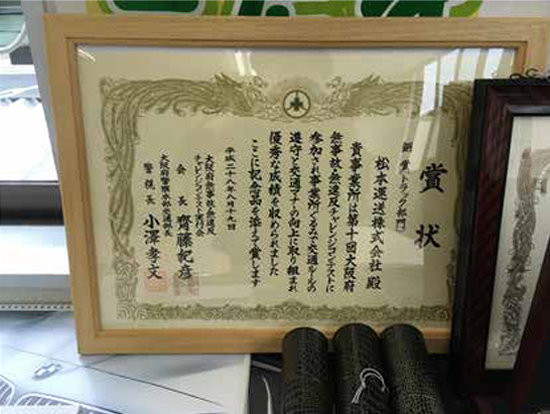 賞状
銅賞(トラック部門)
松本運送株式会社 殿
貴事業所は第十回大阪府
無事故・無違反チャレンジコンテストに
参加され事業所ぐるみで交通ルールの
遵守と交通マナーの向上に取り組まれ
優秀な成績を収められました
ここに記念品を添えて賞します
平成二十八年八月十九日
大阪府無事故・無違反
チャレンジコンテスト実行会
会長 齋藤記彦
大阪府警察本部交通部長
警視長 小澤孝文